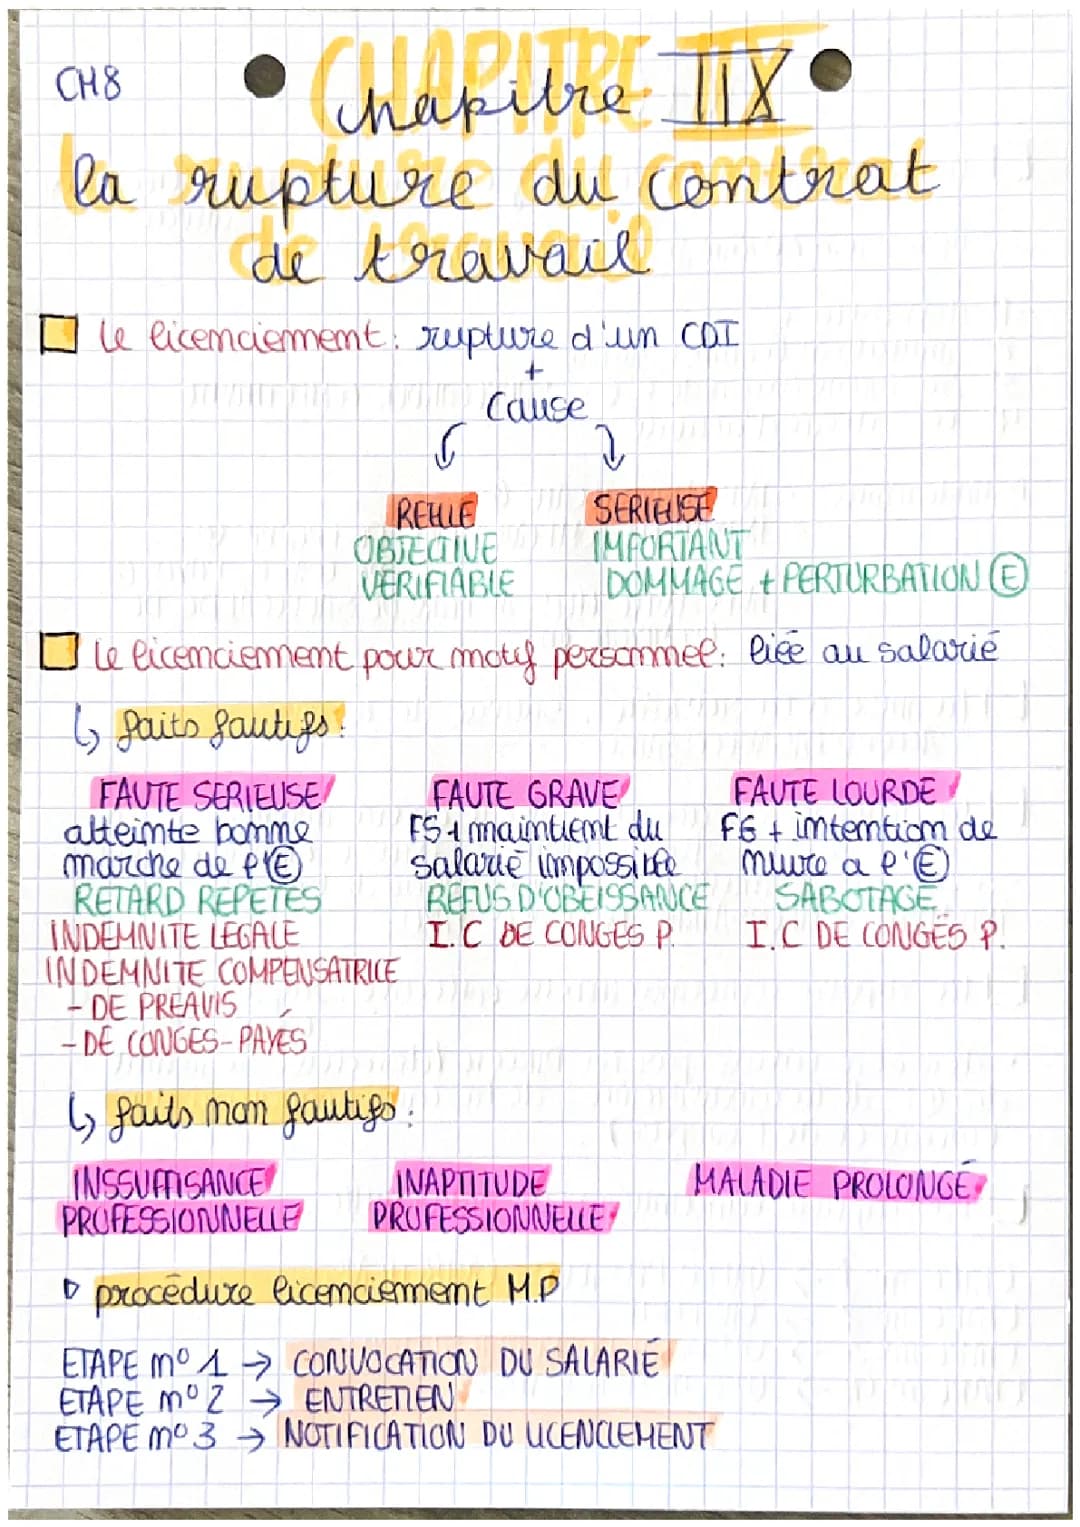 CH8
CHAPITRE
chapitre IIX
la rupture du contrat
de travail
le licenciement: rupture d'un CDI
+
Cause
REELLE SERIEUSE
OBJECTIVE IMPORTANT
VERIFIABLE DOMMAGE + PERTURBATION E
le licenciement pour motif personnel: liée au salarié
↳ faits fautifs:
FAUTE SERIEUSE FAUTE GRAVE FAUTE LOURDE
atteinte bonne FS + maintient du FG + intention de
marche de l'E salarié impossible nuire a l'E
RETARD REPETES REFUS D'OBEISSANCE SABOTAGE
INDEMNITE LEGALE I.C DE CONGES P. I.C DE CONGÉS P.
INDEMNITE COMPENSATRICE
- DE PREAVIS
- DE CONGES-PAYÉS
↳ faits non fautifs:
INSSUFFISANCE INAPTITUDE MALADIE PROLONGÉ
PROFESSIONNELLE PROFESSIONNELLE
procédure licenciement M.P
ETAPE n° 1 → CONVOCATION DU SALARIÉ
ETAPE n° 2 → ENTRETIEN
ETAPE n° 3 → NOTIFICATION DU LICENCIEMENT